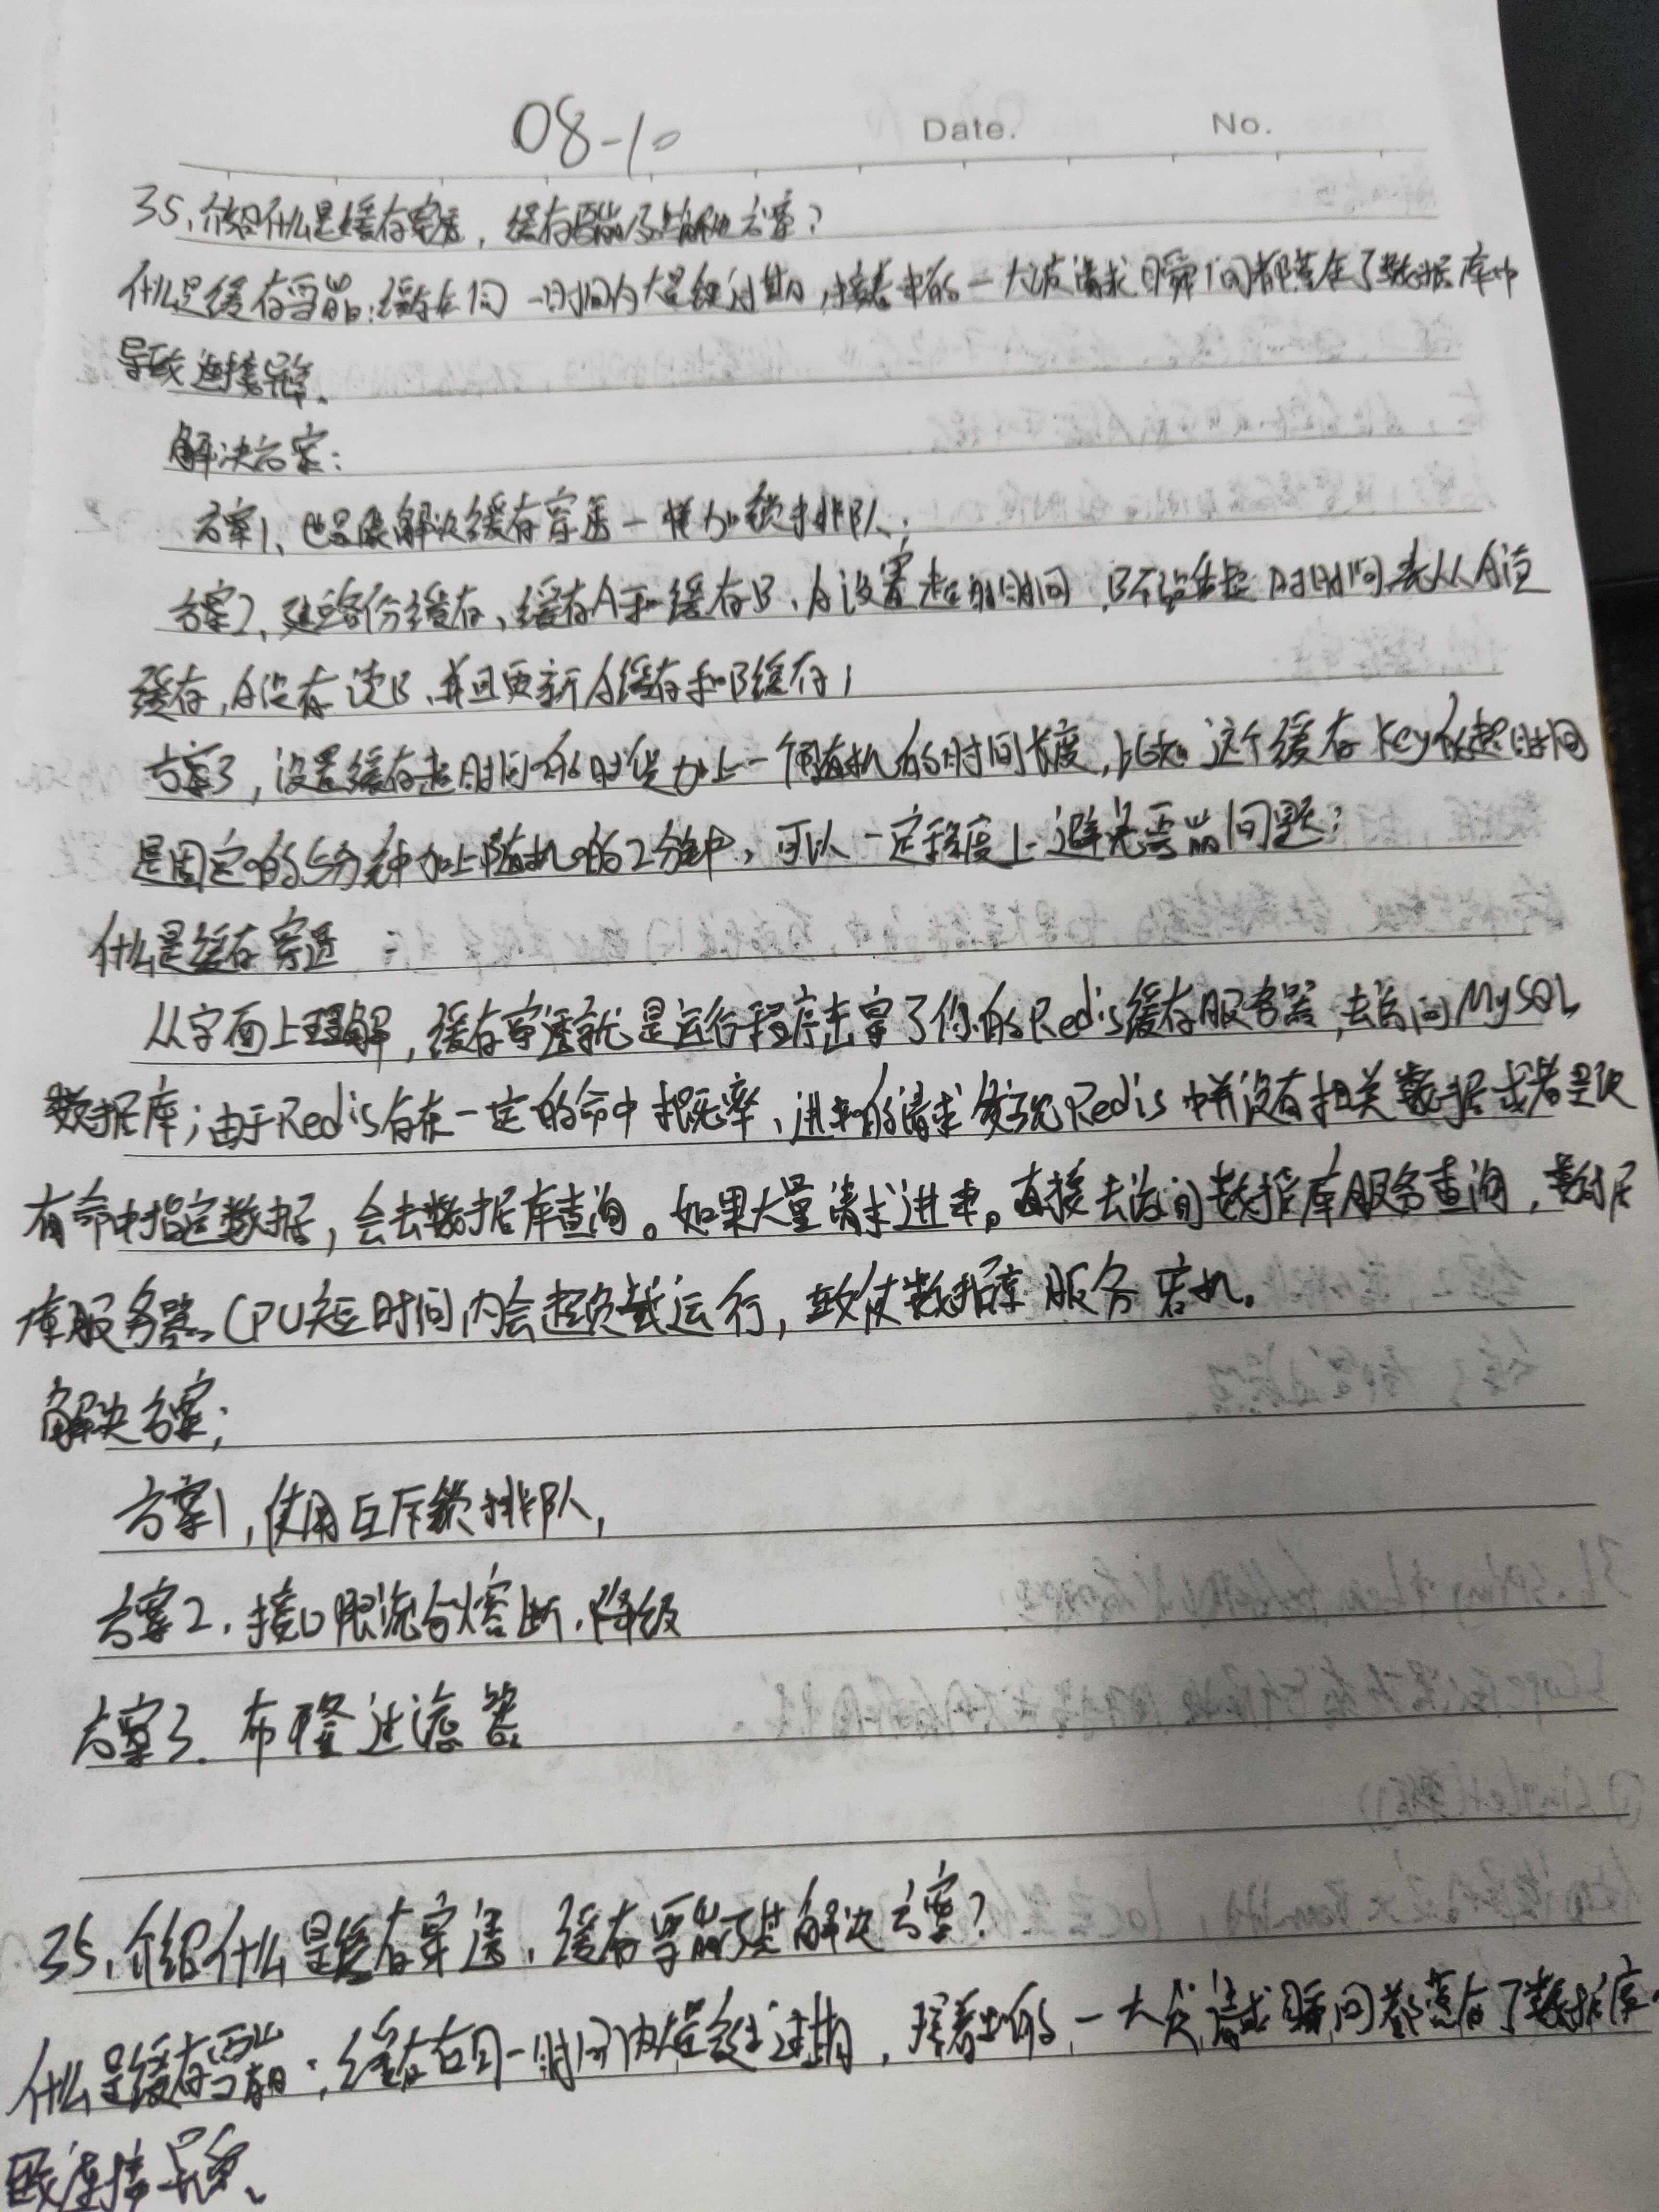 08-10 Date. No.
35、介绍什么是缓存穿透，缓存雪崩及其解决方案？
什么是缓存雪崩：缓存在同一时间内大量键过期，接着来的一大波请求瞬间都落在了数据库中
导致连接异常、
解决方案：
方案1、也是像解决缓存穿透一样加锁排队；
方案2、建立备份缓存、缓存A和缓存B、A设置超时时间，B不设值超时时间，先从A读
缓存，A没有读B、并且更新A缓存和B缓存；
方案3，设置缓存超时时间的时候加上一个随机的时间长度，比如这个缓存key的超时时间
是固定的5分钟加上随机的2分钟，可以一定程度上避免雪崩问题；
什么是缓存穿透
从字面上理解，缓存穿透就是运行程序击穿了你的Redis缓存服务器，去访问MySQL
数据库；由于Redis存在一定的命中概率、进来的请求发现Redis中并没有相关数据或者是没
有命中指定数据，会去数据库查询。如果大量请求进来。直接去访问数据库服务查询，数据
库服务器、CPU短时间内会超负载运行，致使数据库服务宕机。
解决方案；
方案1，使用互斥锁排队，
方案2、接口限流与熔断、降级
方案3、布隆过滤器
35、介绍什么是缓存穿透、缓存雪崩及其解决方案？
什么是缓存雪崩；缓存在同一时间内大量键过期，接着来的一大波请求瞬间都落在了数据库
致连接异常、